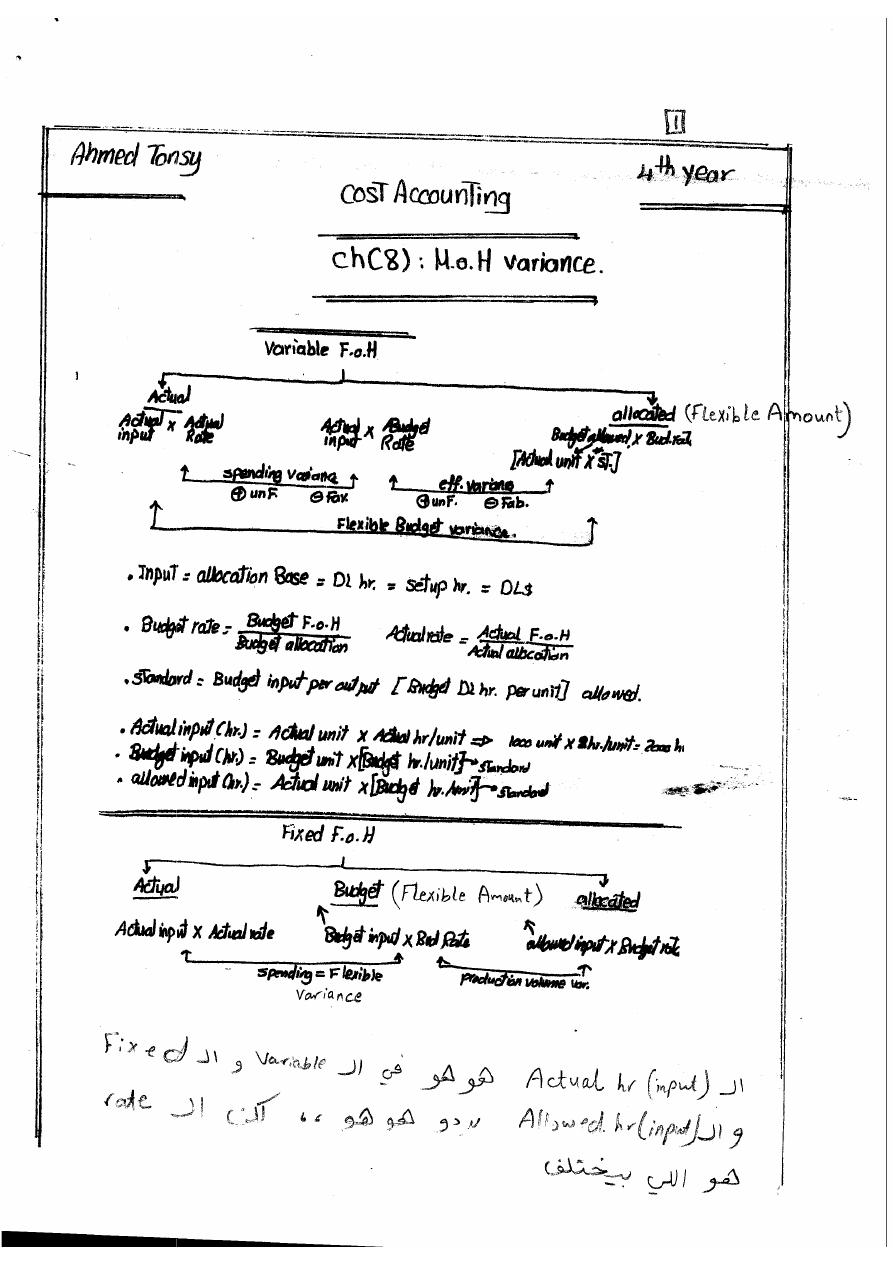 1
Ahmed Tonsy
4th year
Cost Accounting
ch(8): M.o.H variance.
Variable F.o.H
Actual
allocated (Flexible Amount)
Actual input x Actual Rate
Actual input x Budget Rate
Budget allowed x Bud. rate
[Actual unit x ST.]
spending Variance
⊕ unF. ⊖ Fav.
eff. variance
⊕ unF. ⊖ Fab.
Flexible Budget variance.
. Input = allocation Base = DL hr. = setup hr. = DL$
. Budget rate = Budget F.o.H / Budget allocation
Actual rate = Actual F.o.H / Actual allocation
. Standard = Budget input per output [Budget DL hr. per unit] allowed.
. Actual input (hr.) = Actual unit x Actual hr/unit => 1000 unit x 2hr./unit = 2000 h
. Budget input (hr.) = Budget unit x [Budget hr./unit] → standard
. allowed input (hr.) = Actual unit x [Budget hr./unit] → standard
Fixed F.o.H
Actual
Budget (Flexible Amount)
allocated
Actual input x Actual rate
Budget input x Bud Rate
allowed input x Budget rate
spending = Flexible
Variance
production volume var.
الـ Actual hr (input) هو هو في الـ Variable و الـ Fixed
و الـ Allowed.hr(input) بردو هو هو ،، لكن الـ rate
هو اللي بيختلف